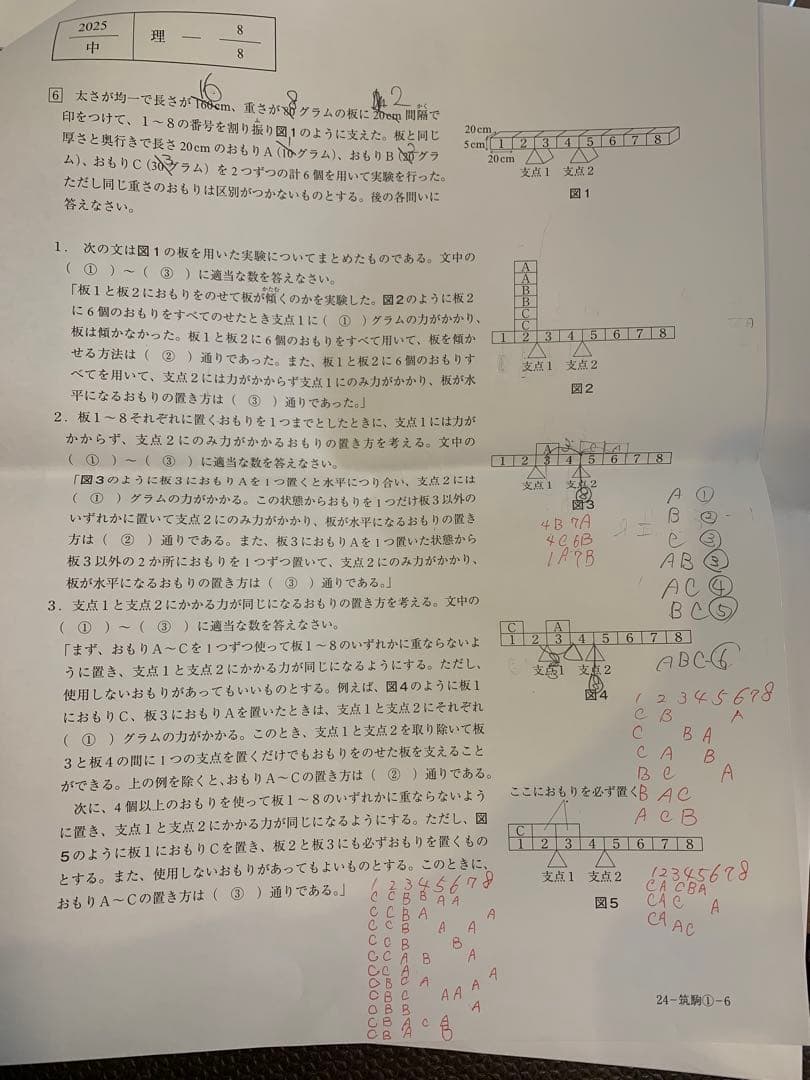 2025
中
理 ー 8/8
6 太さが均一で長さが160cm、重さが80グラムの板に20cm間隔で
16
8
2
印をつけて、1～8の番号を割り振り図1のように支えた。板と同じ
厚さと奥行きで長さ20cmのおもりA(10グラム)、おもりB(20グラ
1
2
ム)、おもりC(30グラム)を2つずつの計6個を用いて実験を行った。
3
ただし同じ重さのおもりは区別がつかないものとする。後の各問いに
答えなさい。
20cm
5cm
20cm
1 2 3 4 5 6 7 8
支点1 支点2
図1
1．次の文は図1の板を用いた実験についてまとめたものである。文中の
( ① )～( ③ )に適当な数を答えなさい。
「板1と板2におもりをのせて板が傾くのかを実験した。図2のように板2
に6個のおもりをすべてのせたとき支点1に( ① )グラムの力がかかり、
板は傾かなかった。板1と板2に6個のおもりをすべて用いて、板を傾か
せる方法は( ② )通りであった。また、板1と板2に6個のおもりす
べてを用いて、支点2には力がかからず支点1にのみ力がかかり、板が水
平になるおもりの置き方は( ③ )通りであった。」
A
A
B
B
C
C
1 2 3 4 5 6 7 8
支点1 支点2
図2
2．板1～8それぞれに置くおもりを1つまでとしたときに、支点1には力が
かからず、支点2にのみ力がかかるおもりの置き方を考える。文中の
( ① )～( ③ )に適当な数を答えなさい。
「図3のように板3におもりAを1つ置くと水平につり合い、支点2には
( ① )グラムの力がかかる。この状態からおもりを1つだけ板3以外の
いずれかに置いて支点2にのみ力がかかり、板が水平になるおもりの置き
方は( ② )通りである。また、板3におもりAを1つ置いた状態から
板3以外の2か所におもりを1つずつ置いて、支点2にのみ力がかかり、
板が水平になるおもりの置き方は( ③ )通りである。」
A
1 2 3 4 5 6 7 8
支点1 支点2
⑧
図3
4B 7A
4C 6B
1A 7B
A ①
B ②
C ③
AB ③
AC ④
BC ⑤
ABC ⑥
3．支点1と支点2にかかる力が同じになるおもりの置き方を考える。文中の
( ① )～( ③ )に適当な数を答えなさい。
「まず、おもりA～Cを1つずつ使って板1～8のいずれかに重ならないよ
うに置き、支点1と支点2にかかる力が同じになるようにする。ただし、
使用しないおもりがあってもいいものとする。例えば、図4のように板1
におもりC、板3におもりAを置いたときは、支点1と支点2にそれぞれ
( ① )グラムの力がかかる。このとき、支点1と支点2を取り除いて板
3と板4の間に1つの支点を置くだけでもおもりをのせた板を支えること
ができる。上の例を除くと、おもりA～Cの置き方は( ② )通りである。
次に、4個以上のおもりを使って板1～8のいずれかに重ならないよう
に置き、支点1と支点2にかかる力が同じになるようにする。ただし、図
5のように板1におもりCを置き、板2と板3にも必ずおもりを置くもの
とする。また、使用しないおもりがあってもよいものとする。このときに、
おもりA～Cの置き方は( ③ )通りである。」
C A
1 2 3 4 5 6 7 8
支点1 支点2
図4
1 2 3 4 5 6 7 8
C B A
C B A
C A B
B C A
B A C
A C B
ここにおもりを必ず置く
C
1 2 3 4 5 6 7 8
支点1 支点2
図5
1 2 3 4 5 6 7 8
C A C B A
C A C A
C A A C
1 2 3 4 5 6 7 8
C C B B A A
C C B A A
C C B A A
C C B B
C C A B A
C C A A
C B C A A A
C B C A A
C B B A
C B A C A
C B A B
24－筑駒①－6